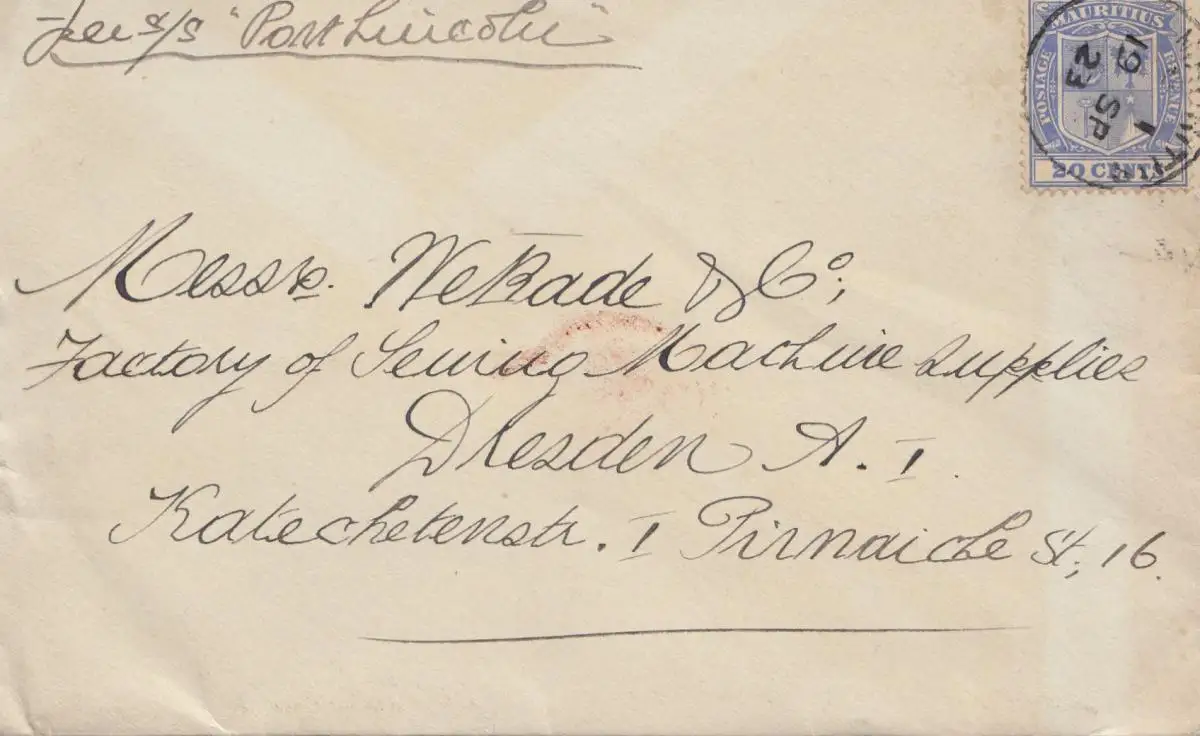 Per s/s "Port Lincoln"
MAURITIUS
POSTAGE
REVENUE
20 CENTS
19
1 SP
23
Messrs. WeKade & Co;
Factory of Sewing Machine Supplies
Dresden A. I.
Katechetenstr. I Pirnaiche St, 16.